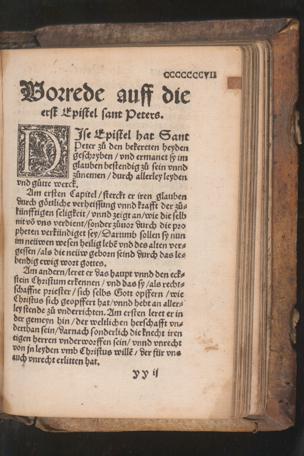 CCCCCCCVII
Vorrede auff die
erst Epistel sant Peters.
DIse Epistel hat Sant
Peter zů den bekereten heyden
geschryben / vnd ermanet sy im
glauben bestendig zů sein vnnd
zůnemen / durch allerley leyden
vnd gůtte werck.
Am ersten Capitel / sterckt er iren glauben
durch göttliche verheissung vnnd krafft der zů-
künfftigen seligkeit / vnnd zeigt an / wie die selb
nit võ vns verdient / sonder zůuor durch die pro
pheten verkündiget sey / Darumb sollen sy nun
im neüwen wesen heilig lebẽ vnd des alten ver-
gessen / als die neüw geborn seind durch das le-
bendig ewig wort gottes.
Am andern / leret er das haupt vnnd den eck-
stein Christum erkennen / vnd das sy / als recht-
schaffne priester / sich selbs Gott opffern / wie
Christus sich geopffert hat / vnnd hebt an aller-
ley stende zů vnderrichten. Am ersten leret er in
der gemeyn hin / der weltlichen herschafft vn-
derthan sein / Darnach sonderlich die knecht iren
eigen herren vnderworffen sein / vnnd vnrecht
von jn leyden vmb Christus willẽ / der für vns
auch vnrecht erlitten hat.
yy ij